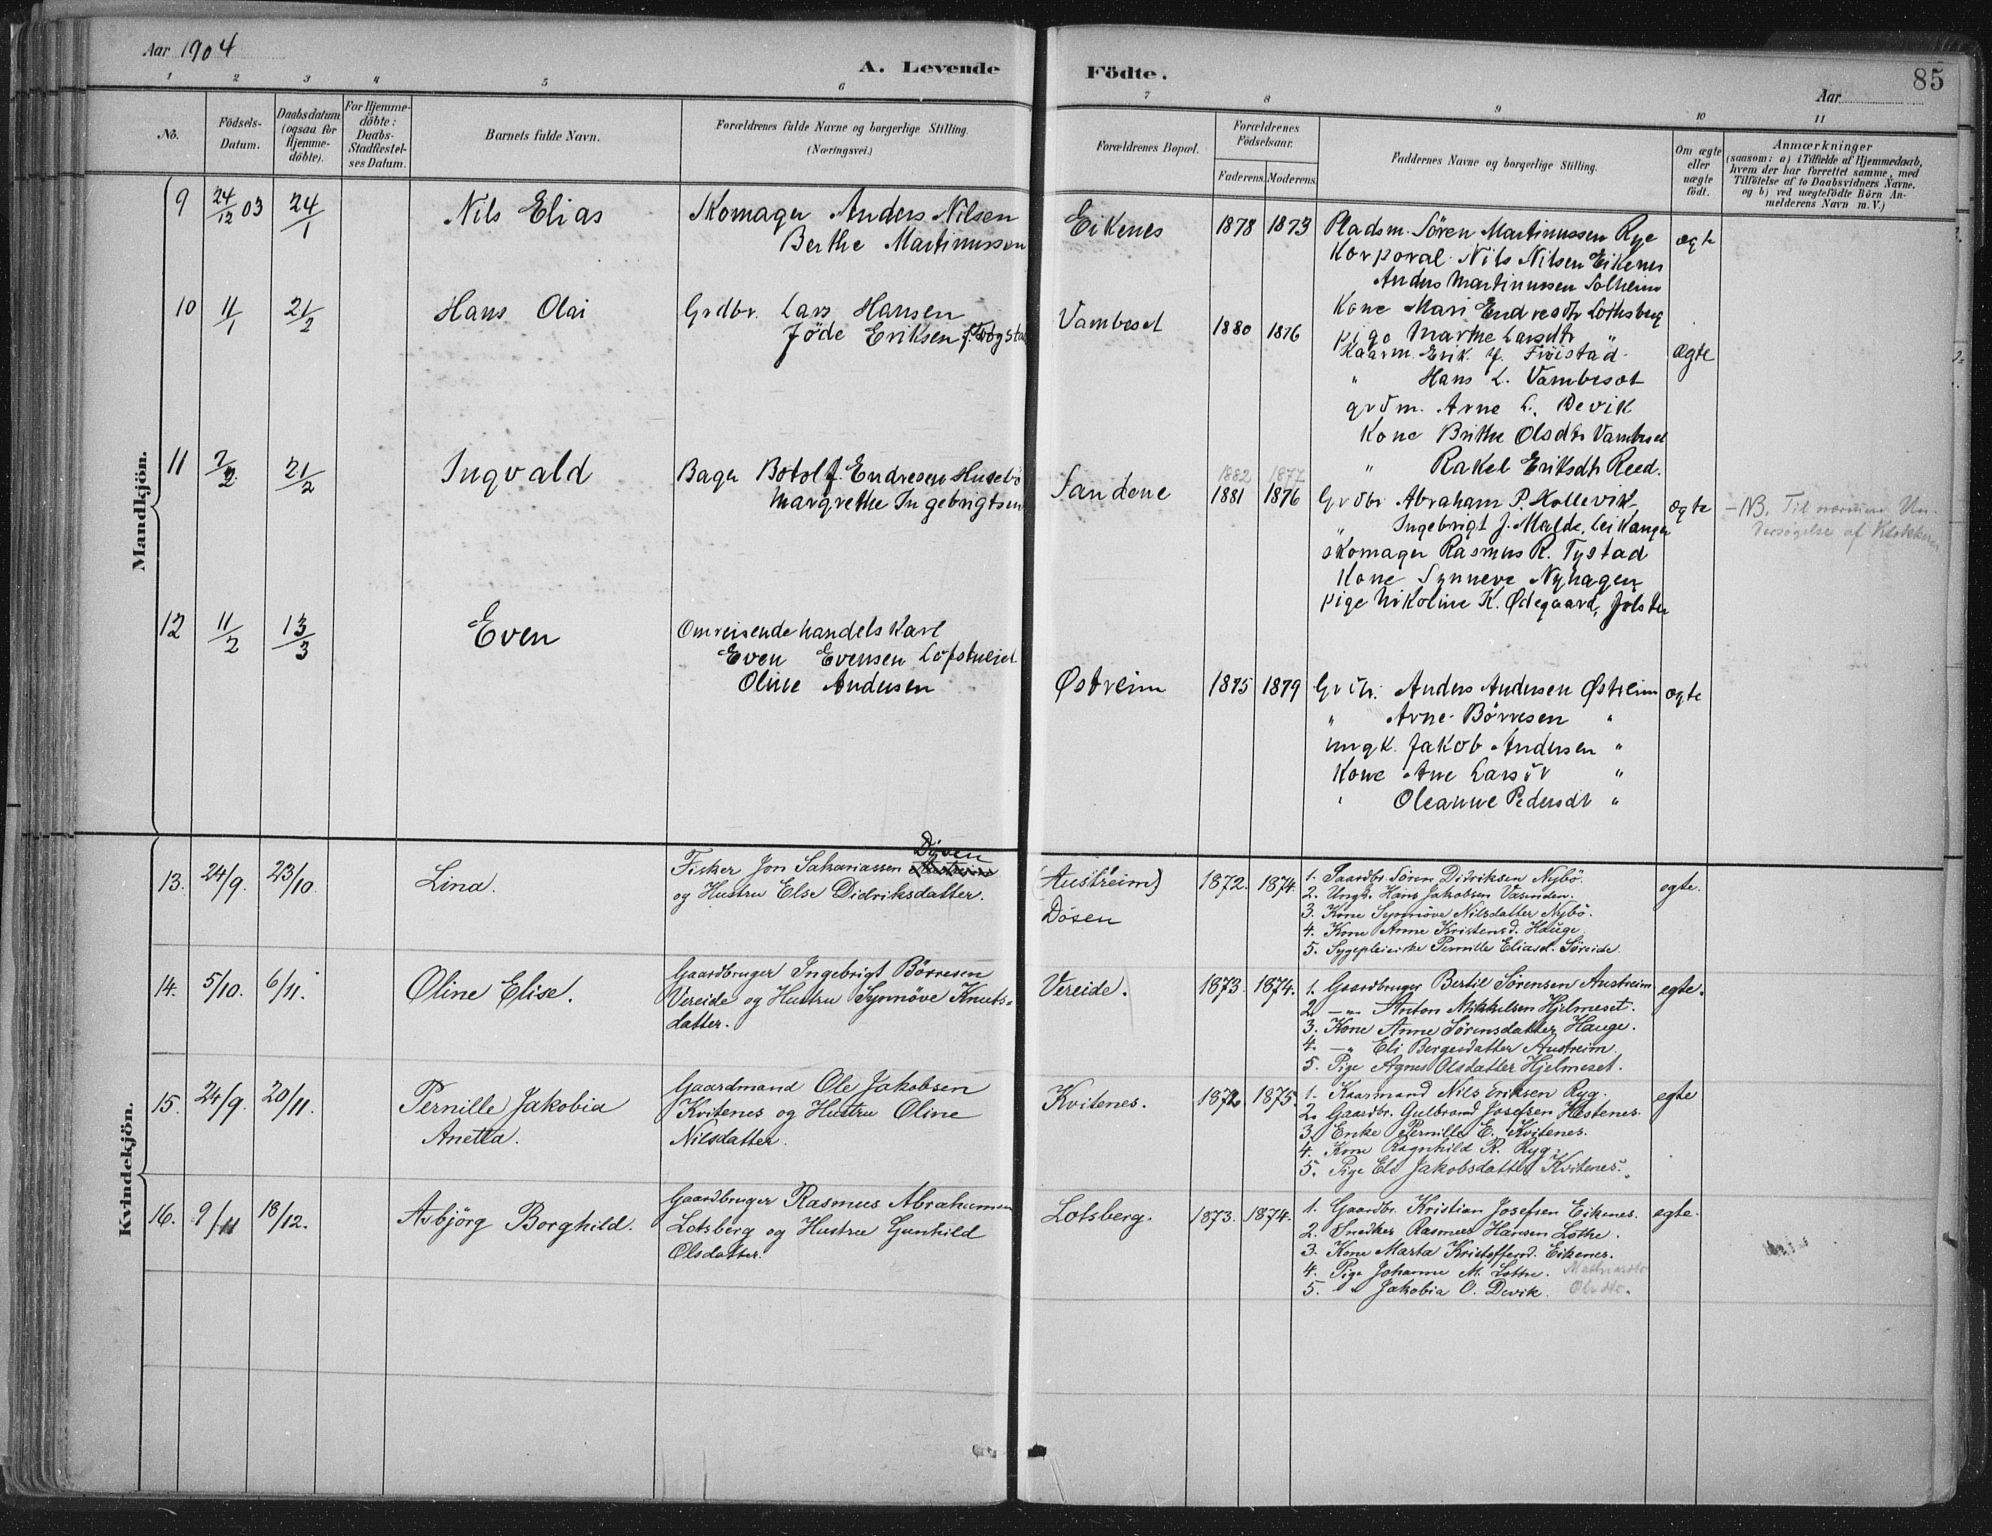 Aar 1904
A. Levende Födte.
Aar
85
1 2 3 4 5 6 7 8 9 10 11
No.
Födsels-Datum.
Daabsdatum (ogsaa for Hjemmedöbte).
For Hjemmedöbte: Daabs-Stadfæstelses Datum.
Barnets fulde Navn.
Forældrenes fulde Navne og borgerlige Stilling.
(Næringsvei.)
Forældrenes Bopæl.
Forældrenes Födselsaar.
Faderens. Moderens.
Faddernes Navne og borgerlige Stilling.
Om ægte eller uægte födt.
Anmærkninger
(saasom: a) i Tilfælde af Hjemmedaab, hvem der har forrettet samme, med Tilföielse af to Daabsvidners Navne, og b) ved uægtefödte Börn Anmelderens Navn m. V.)
Mandkjön.
9 24/12 03 24/1 Nils Elias Skomager Anders Nilsen
Berthe Martinussen
Eikenes 1878 1873 Pladsm. Sören Martinussen Rye ægte
Korporal Nils Nilsen Eikenes
Anders Martinussen Solheim
Kone Mari Endresdtr Lothsberg
pige Marthe Larsdtr "
10 11/1 21/2 Hans Olai Grdbr. Lars Hansen
Jöde Eriksen
Vambeset 1880 1876 Kaarm. Erik J. Fröistad ægte
" Hans L. Vambeset
grdm. Arne L. Devik
Kone Brithe Olsdtr Vambeset
" Rakel Eriksdtr Reed.
11 7/2 21/2 Ingvald Bager Botolf Endresen Husebö
Margrethe Ingebrigtsen
Sandene 1882 1877
1881 1876 Grdbr Abraham P. Hollevik ægte
" Ingebrigt J. Malde, Leikanger
skomager Rasmus R. Tystad
Kone Synneve Nyhagen
pige Nikoline K. Ødegaard, Jölster
- NB. Til nærmere Un-
dersøgelse af Klokkeren
12 11/2 13/3 Even Omreisende handelskarl
Even Evensen
Oline Andersen
Østreim 1875 1879 Anders Andersen Østreim ægte
" Arne Börresen "
ungk. Jakob Andersen "
Kone Ane Larsdtr "
" Oleanne Pedersdtr "
Kvindekjön.
13. 24/9. 23/10. Lina. Fisker Jon Sakariassen Dösen
og Hustru Else Didriksdatter.
(Austreim)
Dösen
1872. 1874. 1. Gaardbr. Sören Didriksen Nybö. egte.
2. Ungk. Hans Jakobsen Vasenden.
3. Kone Synnöve Nilsdatter Nybö.
4. Kone Anne Kristensd. Hauge.
5. Sygepleierske Pernille Eliasd. Söreide.
14. 5/10. 6/11. Oline Elise. Gaardbruger Ingebrigt Börresen
Vereide og Hustru Synnöve Knuts-
datter.
Vereide. 1873. 1874. 1. Gaardbruger Bertil Sörensen Austreim egte.
2. -"- Anton Mikkelsen Hjelmeset.
3. Kone Anne Sörensdatter Hauge.
4. -"- Eli Bergesdatter Austreim.
5. Pige Agnes Olsdatter Hjelmeset.
15. 24/9. 20/11. Pernille Jakobia
Anetta.
Gaardmand Ole Jakobsen
Kvitenes og Hustru Oline
Nilsdatter.
Kvitenes. 1872. 1875. 1. Kaarmand Nils Eriksen Ryg. egte
2. Gaardbr. Gulbrand Josefsen Hestenes.
3. Enke Pernille E. Kvitenes.
4. Kone Ragnhild R. Ryg.
5. Pige Eli Jakobsdatter Kvitenes.
16. 9/11 18/12. Asbjörg Borghild. Gaardbruger Rasmus Abrahamsen
Lotsberg og Hustru Gunhild
Olsdatter.
Lotsberg. 1873. 1874. 1. Gaardbr. Kristian Josefsen Eikenes. egte.
2. Snedker Rasmus Hansen Lothe.
3. Kone Marta Kristoffersd. Eikenes.
4. Pige Johanne M. Lothe. Mathiasdtr
5. -"- Jakobia O. Devik. Olsdtr.